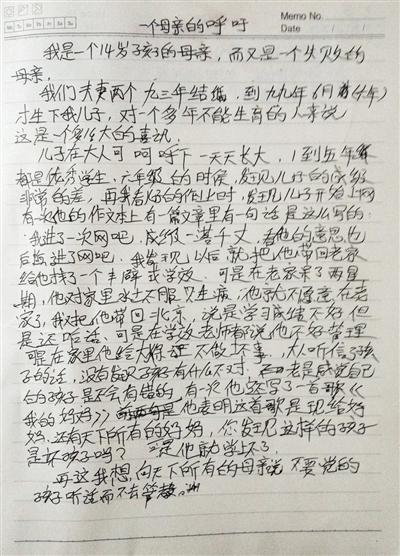 一个母亲的呼吁
Memo No.
Date / /
Mo Tu We Th Fr Sa Su
我是一个14岁孩子的母亲，而又是一个失败的
母亲，
我们夫妻两个九三年结婚，到九九年6月
才生下我儿子，对一个多年不能生育的人来说
这是一个多么大的喜讯，
儿子在大人呵呵呼下一天天长大，1到五年级
都是优秀学生，六年级的时候，发现儿子的成绩
非常的差，再我看他的作业时，发现儿子开始上网
有次他的作文本上有一篇文章里有一句话是这么写的：
我进了一次网吧，成绩一落千丈，看他的意思也
后悔进了网吧，我发现以后就把他带回老家
给他找了一个学校。可是在老家呆了两星
期，他对家里水土不服只生病，他就不愿意在老
家了，我又把他带回北京，说是学习成绩不好但
是还，可是在学校老师都说他不好管理
可是在家里他给大人保证不做坏事，大人听信了孩
子的话，没有发现孩子有什么不对，老是感觉自己
的孩子是不会有错的，有次他还写了一首歌《
我的妈妈》他表明这首歌是献给妈
妈，还有天下所有的妈妈，你发现这样的孩子
是坏孩子吗？是他就学坏了，
再这我想向天下所有的母亲说不要觉的
孩子听话而不去管教。